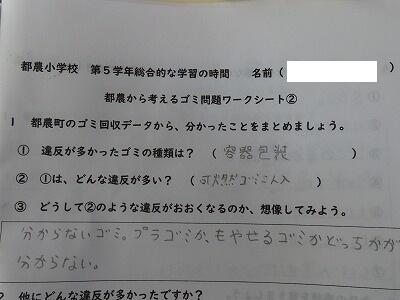 都農小学校 第5学年総合的な学習の時間 名前（
都農から考えるゴミ問題ワークシート②
1 都農町のゴミ回収データから、分かったことをまとめましょう。
① 違反が多かったゴミの種類は？（容器包装 ）
② ①は、どんな違反が多い？（可燃ゴミ混入 ）
③ どうして②のような違反がおおくなるのか、想像してみよう。
分からないゴミ。プラゴミか、もやせるゴミかどっちかが
分からない。
他にどんな違反が多かったですか？